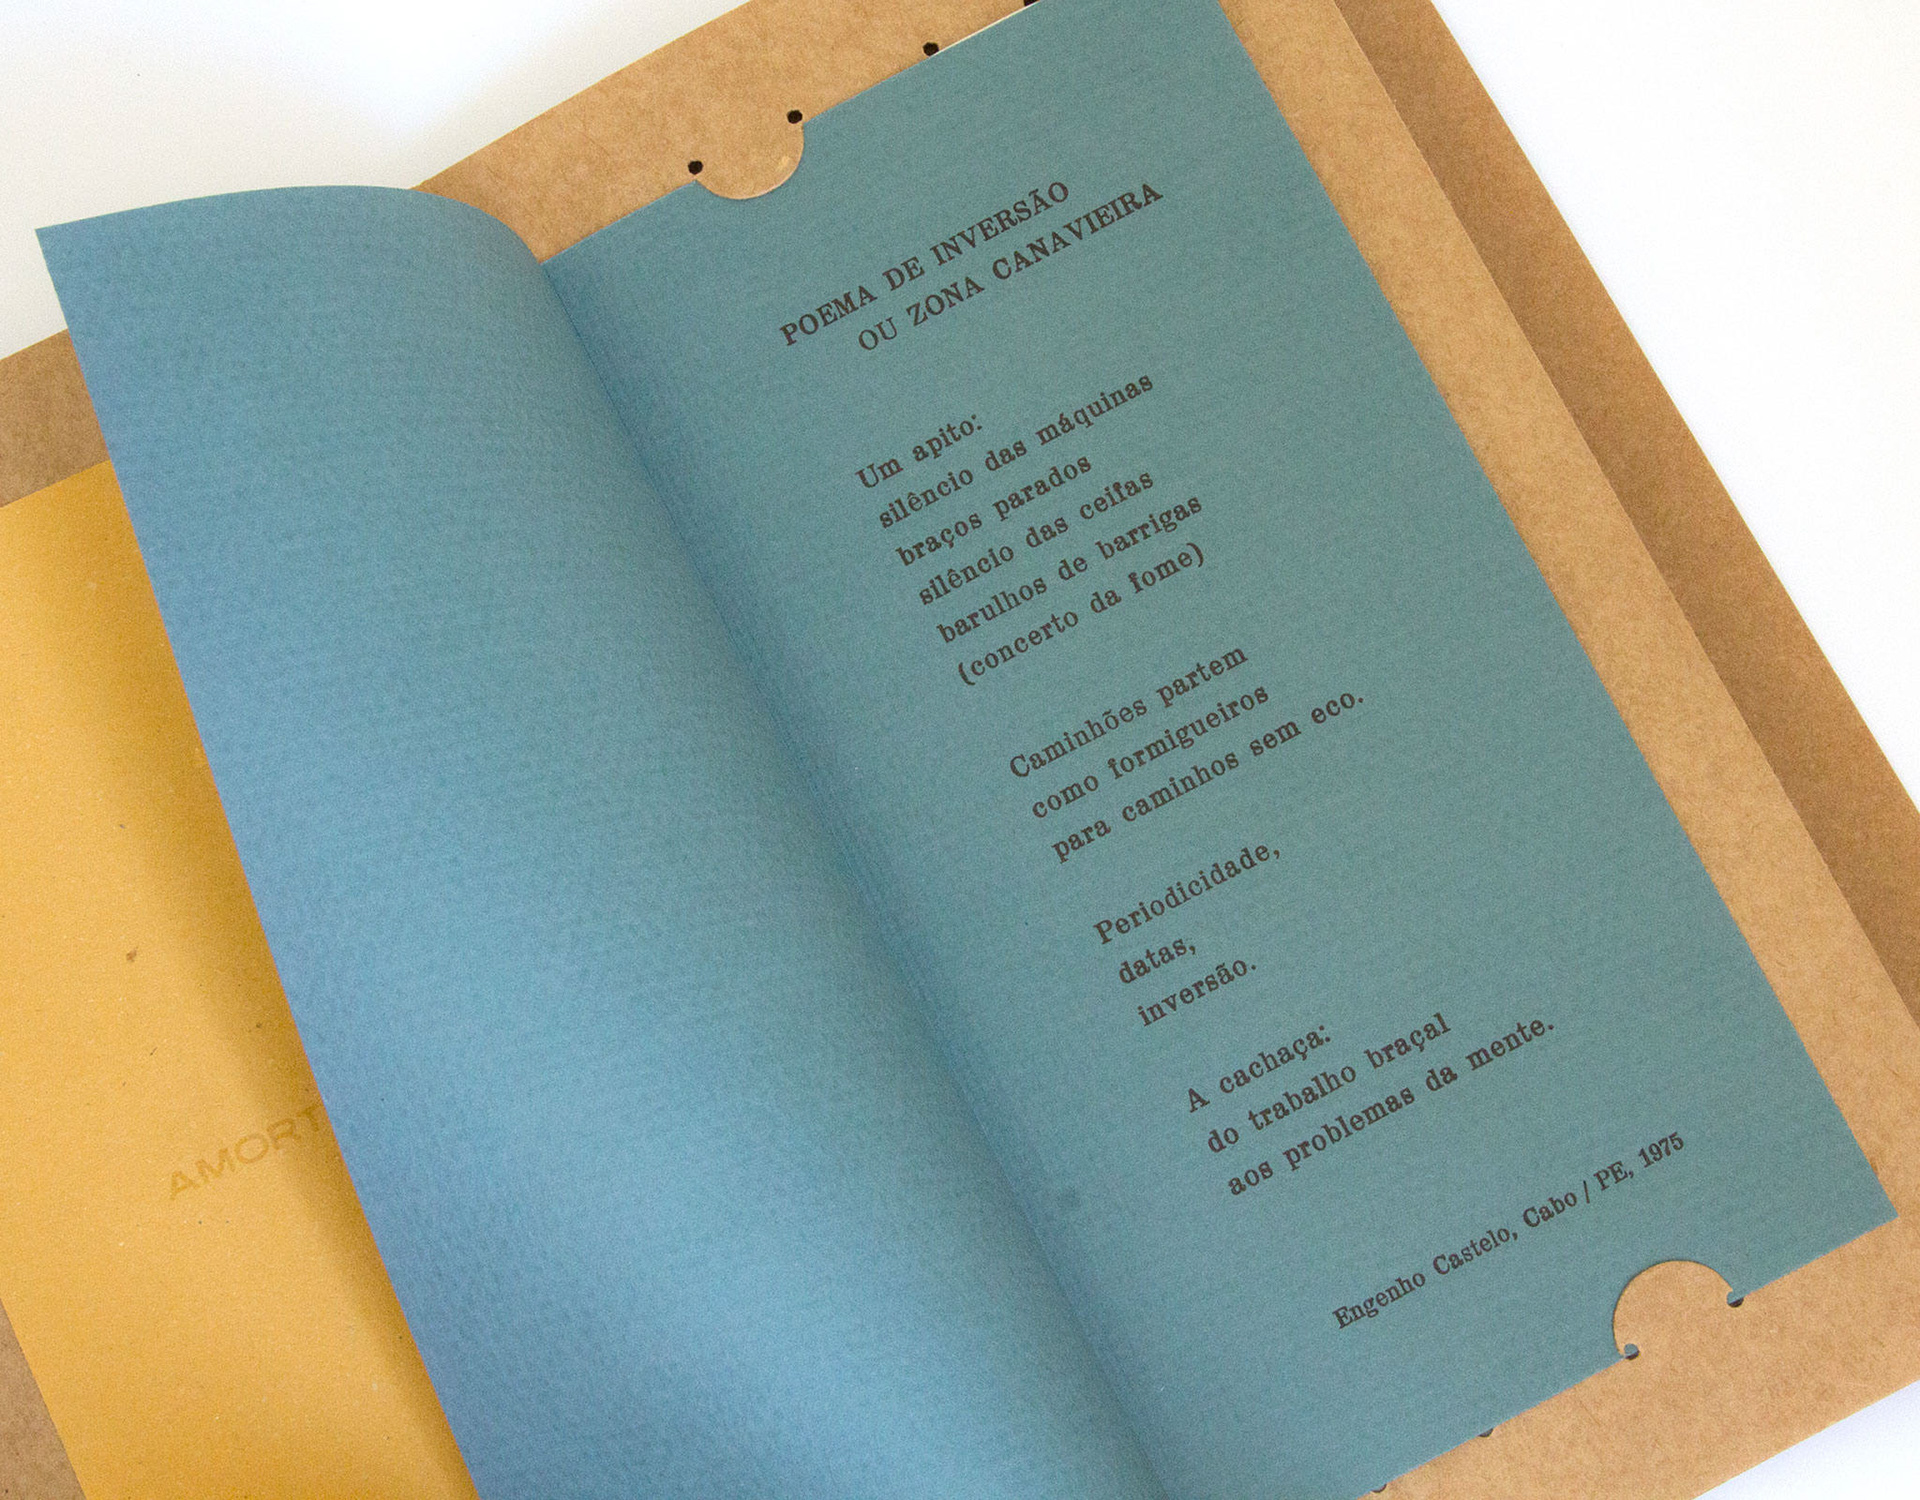 POEMA DE INVERSÃO
OU ZONA CANAVIEIRA
Um apito:
silêncio das máquinas
braços parados
silêncio das ceifas
barulhos de barrigas
(concerto da fome)
Caminhões partem
como formigueiros
para caminhos sem eco.
Periodicidade,
datas,
inversão.
A cachaça:
do trabalho braçal
aos problemas da mente.
Engenho Castelo, Cabo / PE, 1975
AMORT